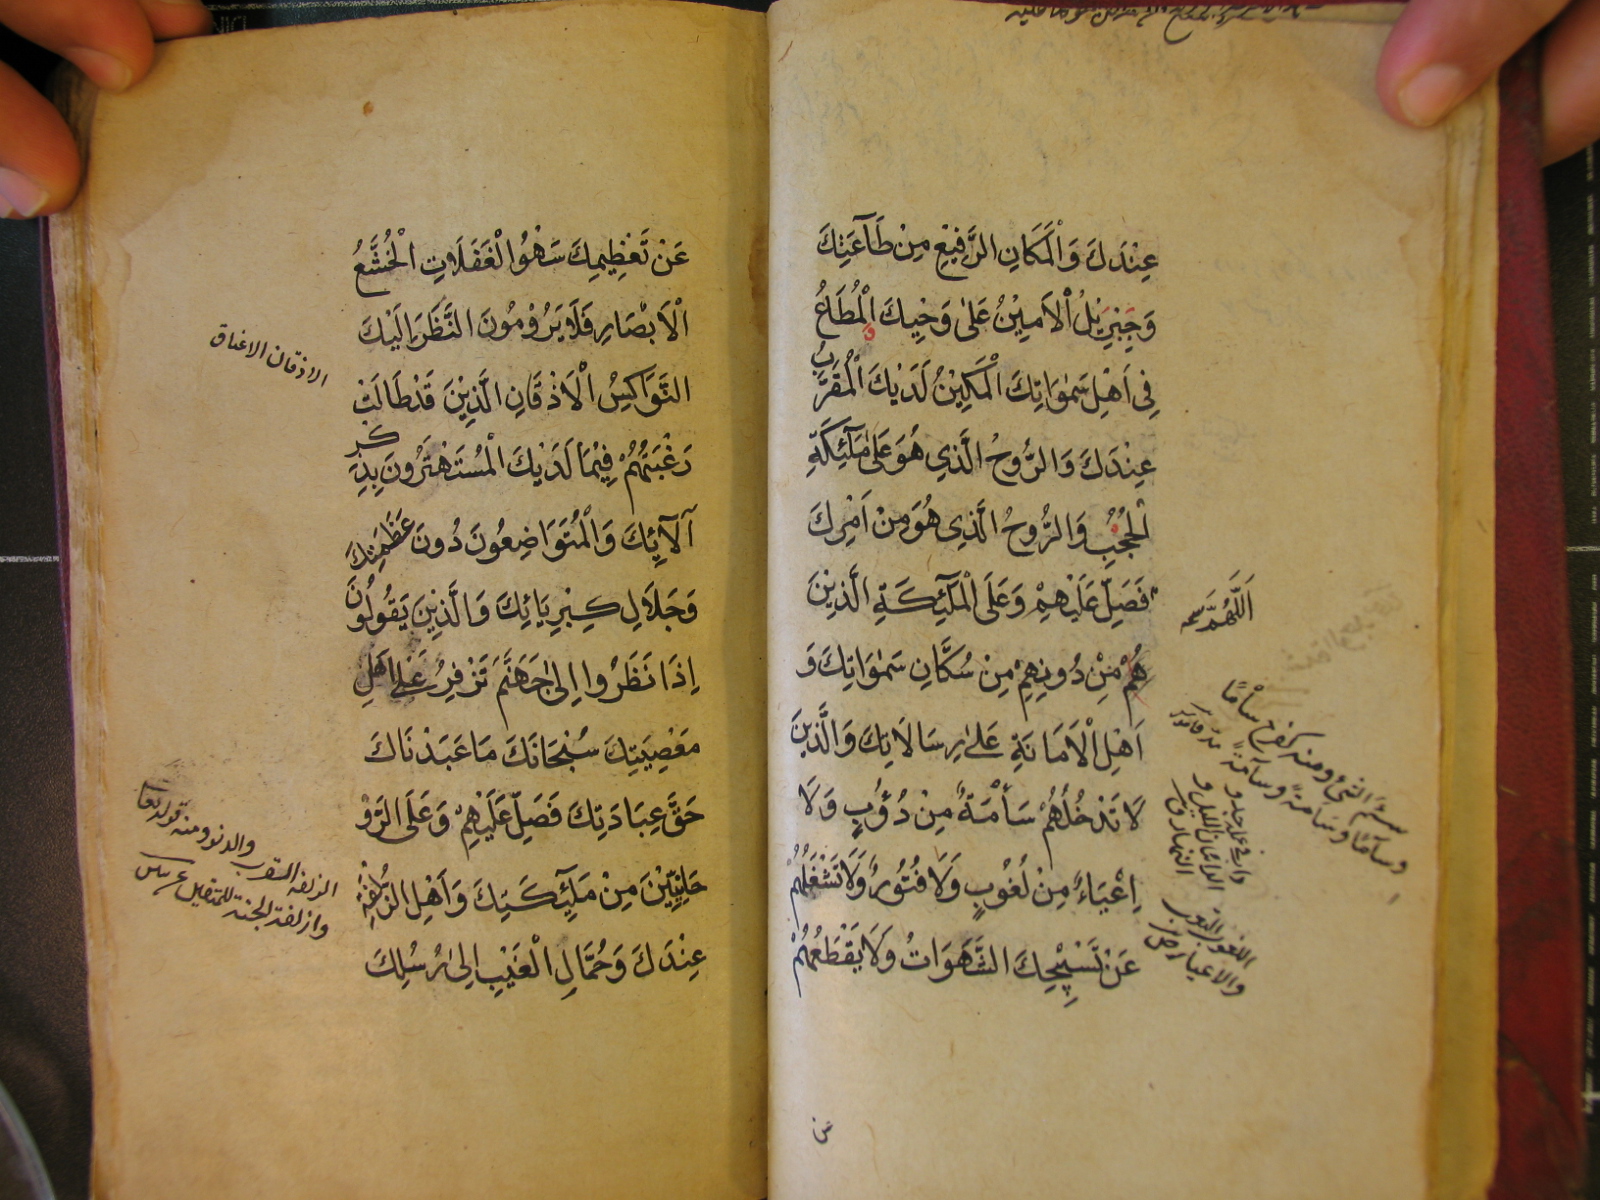 عِنْدَكَ وَالْمَكَانِ الرَّفِيْعِ مِنْ طَآعَتِكَ
وَجِبْرِيْلُ الْاَمِيْنُ عَلٰى وَحْيِكَ الْمُطَاعُ
فِى اَهْلِ سَمٰوَاتِكَ الْمَكِيْنُ لَدَيْكَ الْمُقَرَّبُ
عِنْدَكَ وَالرُّوحُ الَّذِى هُوَ عَلٰى مَلٰٓئِكَةِ
الْحُجُبِ وَالرُّوحُ الَّذِى هُوَ مِنْ اَمْرِكَ
فَصَلِّ عَلَيْهِمْ وَعَلَى الْمَلٰٓئِكَةِ الَّذِيْنَ
هُمْ مِنْ دُوْنِهِمْ مِنْ سُكَّانِ سَمٰوَاتِكَ وَ
اَهْلِ الْاَمَانَةِ عَلٰى رِسَالَاتِكَ وَالَّذِيْنَ
لَا تَدْخُلُهُمْ سَأْمَةٌ مِنْ دُؤُبٍ وَلَا
اِعْيَاءٌ مِنْ لُغُوبٍ وَلَا فُتُورٌ وَلَا تَشْغَلُهُمْ
عَنْ تَسْبِيْحِكَ الشَّهَوَاتُ وَلَا يَقْطَعُهُمْ
اَللّٰهُمَّ
عَنْ تَعْظِيمِكَ سَهْوُ الْغَفَلَاتِ الْخُشَّعُ
الْاَبْصَارِ فَلَا يَرُوْمُونَ النَّظَرَ اِلَيْكَ
النَّوَاكِسُ الْاَذْقَانِ الَّذِيْنَ قَدْ طَالَتْ
رَغْبَتُهُمْ فِيْمَا لَدَيْكَ الْمُسْتَهْتَرُونَ بِذِكْرِ
آلَآئِكَ وَالْمُتَوَاضِعُونَ دُونَ عَظَمَتِكَ
وَجَلَالِ كِبْرِيَائِكَ وَالَّذِيْنَ يَقُولُونَ
اِذَا نَظَرُوا اِلٰى جَهَنَّمَ تَزْفِرُ عَلٰى اَهْلِ
مَعْصِيَتِكَ سُبْحَانَكَ مَا عَبَدْنَاكَ
حَقَّ عِبَادَتِكَ فَصَلِّ عَلَيْهِمْ وَعَلَى الرَّوْ
حَانِيِّيْنَ مِنْ مَلٰٓئِكَتِكَ وَاَهْلِ الزُّلْفَةِ
عِنْدَكَ وَحُمَّالِ الْغَيْبِ اِلٰى رُسُلِكَ
الاذقان الاعناق
الزلفة القرب والدنو ومنه قوله تعالى
وازلفت الجنة للمتقين